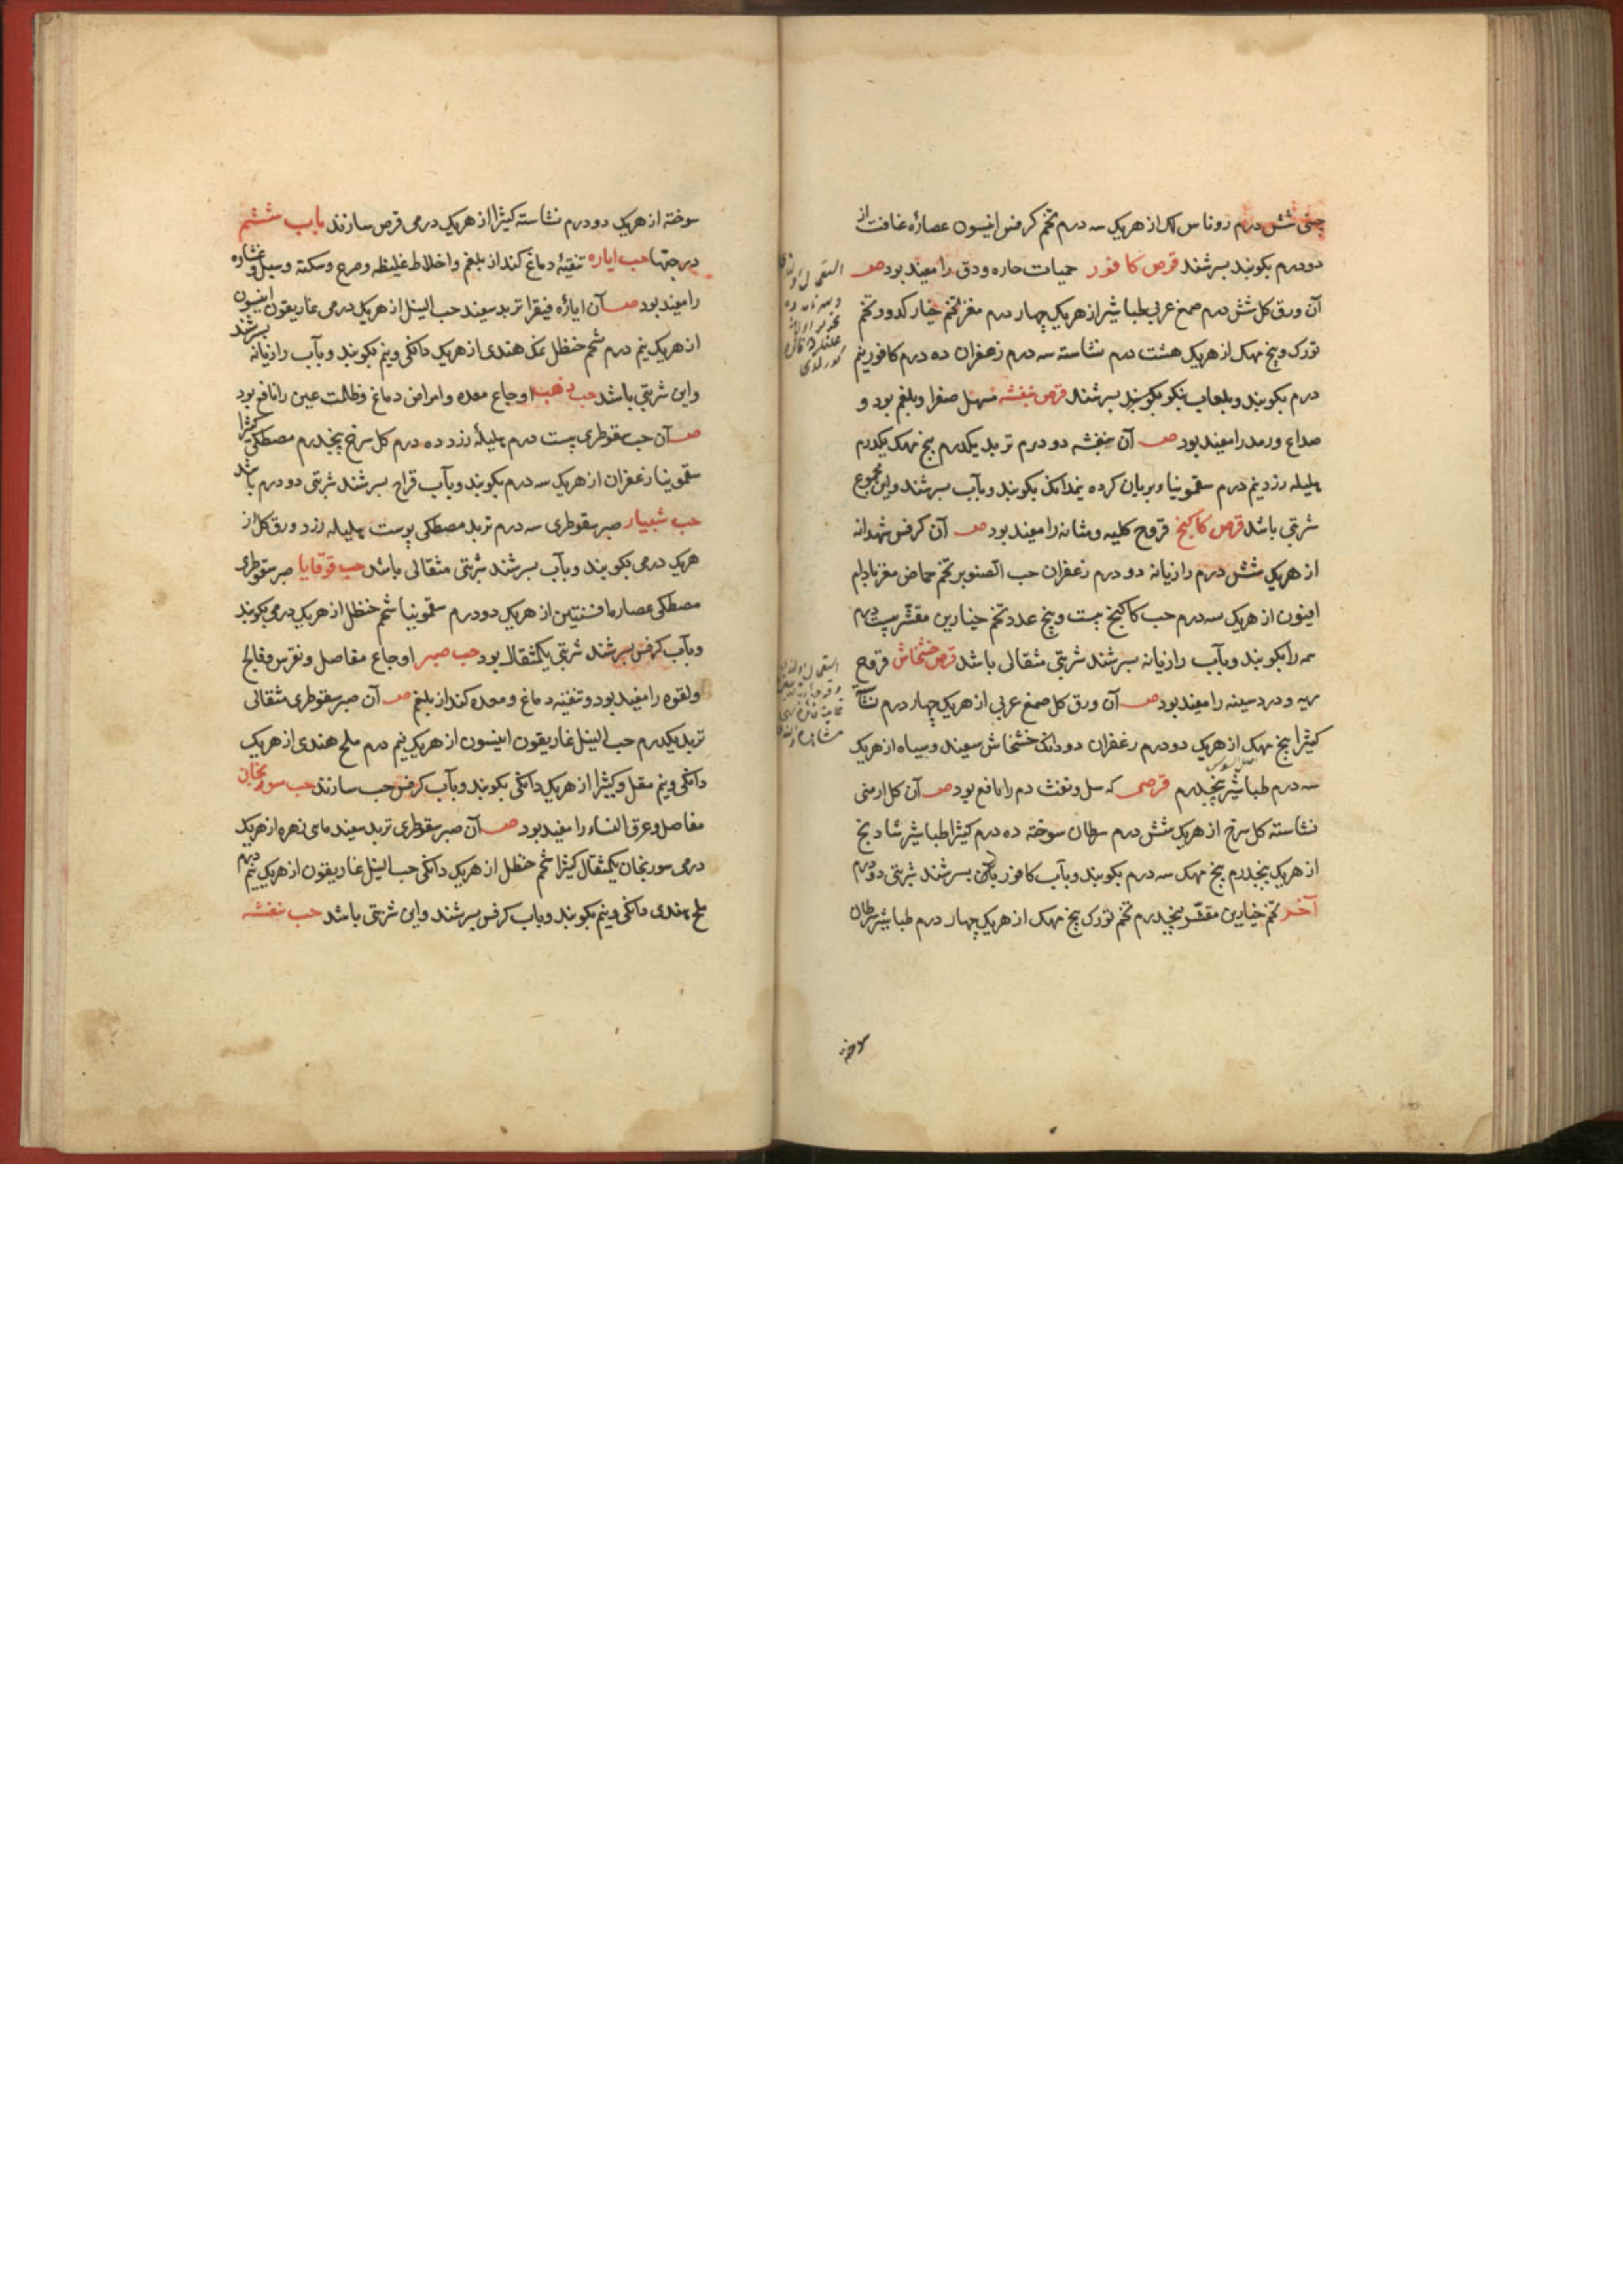 چینی شش درم روناس لک از هریک سه درم تخم کرفس انیسون عصاره غافت از
دو درم بکوبند بسرشند قرص کافور حمیات حاره ودق را مفید بود صـ
آن ورق کل شش درم صمغ عربی طباشیر از هریک چهار درم مغز تخم خیار کدو و تخم
تورک و بیخ مهک از هریک هشت درم نشاسته سه درم زعفران ده درم کافور نیم
درم بکوبند و بلعاب بسرشند قرص بنفشه مسهل صفرا و بلغم بود و
صداع و رمد را مفید بود صـ آن بنفشه دو درم تربد یکدرم بیخ مهک یکدرم
هلیله زرد نیم درم سقمونیاء بریان کرده نیمدانک بکوبند و بآب بسرشند و این مجموع
شربتی باشد قرص کاکنج قروح کلیه و مثانه را مفید بود صـ آن کرفس شهدانه
از هریک شش درم رازیانه دو درم زعفران حب الصنوبر تخم حماض مغز بادام
افیون از هریک سه درم حب کاکنج بیست و پنج عدد تخم خیارین مقشر بیست درم
همه را بکوبند و بآب رازیانه بسرشند شربتی مثقالی باشد قرص خشخاش قروح
ریه و درد سینه را مفید بود صـ آن ورق کل صمغ عربی از هریک چهار درم نشاسته
کتیرا بیخ مهک از هریک دو درم زعفران دو دانک خشخاش سفید و سیاه از هریک
اصل السوس
سه درم طباشیر پنجدرم قرصی که سل و نفث دم را نافع بود صـ آن کل ارمنی
نشاسته کل سرخ از هریک شش درم سرطان سوخته ده درم کتیرا طباشیر شادنج
از هریک پنجدرم بیخ مهک سه درم بکوبند و بآب کافور بسرشند شربتی دو درم
آخر تخم خیارین مقشر پنجدرم تخم تورک بیخ مهک از هریک چهار درم طباشیر سرطان
سوخته
سوخته از هریک دو درم نشاسته کتیرا از هریک درمی قرص سازند باب ششم
در حبها حب ایاره تنقیهٔ دماغ کند از بلغم و اخلاط غلیظه و صرع و سکته و سبل و غشاوه
را مفید بود صـ آن ایارهٔ فیقرا تربد سفید حب النیل از هریک درمی غاریقون انیسون
از هریک نیم درم شحم حنظل نمک هندی از هریک دانکی و نیم بکوبند و بآب رازیانه بسرشند
و این شربتی باشد حب ذهب اوجاع معده و امراض دماغ و ظلمت عین را نافع بود
صـ آن صبر سقوطری بیست درم هلیلهٔ زرد ده درم کل سرخ پنجدرم مصطکی کتیرا
سقمونیا زعفران از هریک سه درم بکوبند و بآب قراح بسرشند شربتی دو درم باشد
حب شبیار صبر سقوطری سه درم تربد مصطکی پوست هلیله زرد ورق کل از
هریک درمی بکوبند و بآب بسرشند شربتی مثقالی باشد حب قوقایا صبر سقوطری
مصطکی عصاره افسنتین از هریک دو درم سقمونیا شحم حنظل از هریک درمی بکوبند
و بآب کرفس بسرشند شربتی یکمثقال بود حب صبر اوجاع مفاصل و نقرس و فالج
و لقوه را مفید بود و تنقیه دماغ و معده کند از بلغم صـ آن صبر سقوطری مثقالی
تربد یکدرم حب النیل غاریقون انیسون از هریک نیم درم ملح هندی از هریک
دانکی و نیم مقل و کتیرا از هریک دانکی بکوبند و بآب کرفس حب سازند حب سورنجان
مفاصل و عرق النساء را مفید بود صـ آن صبر سقوطری تربد سفید ماهی زهره از هریک
درمی سورنجان یکمثقال کتیرا شحم حنظل از هریک دانکی حب النیل غاریقون از هریک نیم درم
ملح هندی دانکی و نیم بکوبند و بآب کرفس بسرشند و این شربتی باشد حب بنفشه